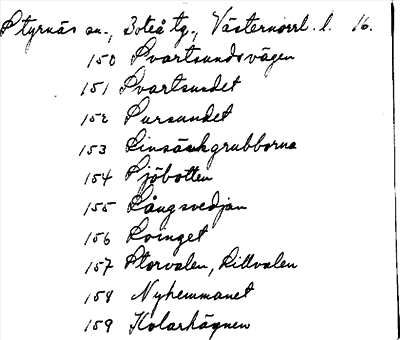 Styrnäs sn., Boteå tg., Västernorrl. l. 16.
150 Svartsundsvägen
151 Svartsundet
152 Sursundet
153 Linsänkgrubborna
154 Sjöbotten
155 Långsvedjan
156 Svinget
157 Storvalen, Lillvalen
158 Nyhemmanet
159 Kolarhägnen